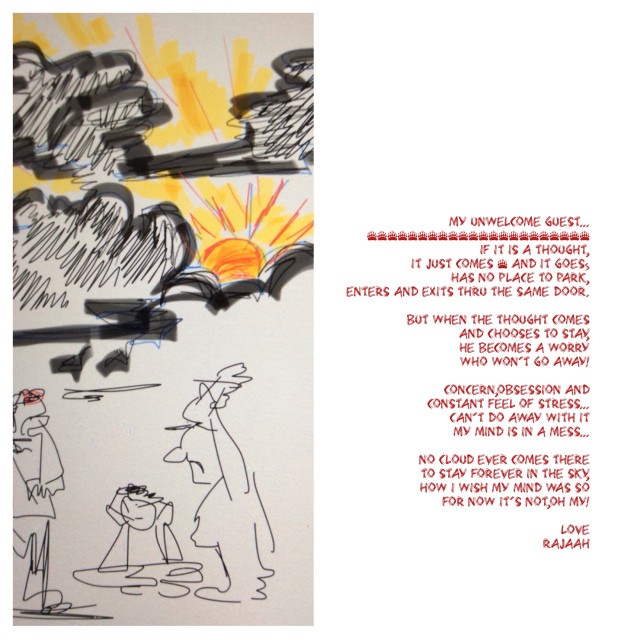 MY UNWELCOME GUEST...
IF IT IS A THOUGHT,
IT JUST COMES & AND IT GOES;
HAS NO PLACE TO PARK,
ENTERS AND EXITS THRU THE SAME DOOR.
BUT WHEN THE THOUGHT COMES
AND CHOOSES TO STAY,
HE BECOMES A WORRY
WHO WON'T GO AWAY!
CONCERN,OBSESSION AND
CONSTANT FEEL OF STRESS...
CAN'T DO AWAY WITH IT
MY MIND IS IN A MESS...
NO CLOUD EVER COMES THERE
TO STAY FOREVER IN THE SKY,
HOW I WISH MY MIND WAS SO
FOR NOW IT'S NOT,OH MY!
LOVE
RAJAAH